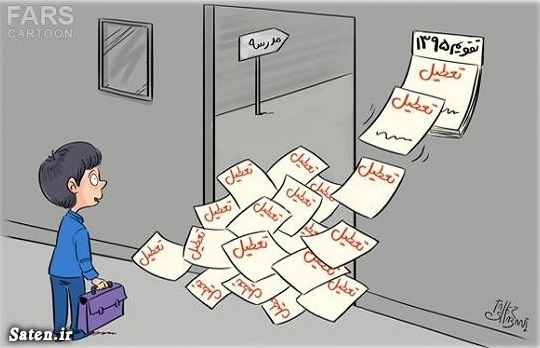 FARS
CARTOON
مدرسه
تقویم ۱۳۹۵
تعطیل
تعطیل
تعطیل
تعطیل
تعطیل
تعطیل
تعطیل
تعطیل
تعطیل
تعطیل
تعطیل
تعطیل
تعطیل
تعطیل
تعطیل
تعطیل
تعطیل
Saten.ir